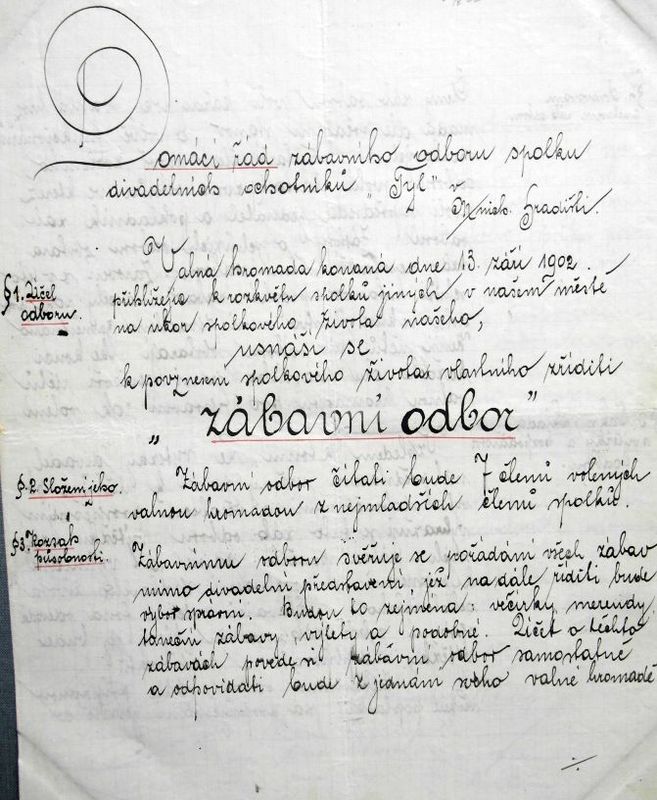 Domácí řád zábavního odboru spolku
divadelních ochotníků „Tyl" v
Mnich. Hradišti.
Valná hromada konaná dne 13. září 1902.
§1. Účel
odboru.
přihlížejíc k rozkvětu spolků jiných v našem městě
na úkor spolkového života našeho,
usnáší se
k povznesení spolkového života vlastního zříditi
„zábavní odbor"
§.2. Složení jeho.
Zábavní odbor čítati bude 7 členů volených
valnou hromadou z nejmladších členů spolku.
§3. Rozsah
působnosti.
Zábavnímu odboru svěřuje se pořádání všech zábav
mimo divadelní představení, jež na dále říditi bude
výbor správní. Budou to zejména: večírky, merendy,
taneční zábavy, výlety a podobné. Účet o těchto
zábavách povede si zábavní odbor samostatně
a odpovídati bude z jednání svého valné hromadě